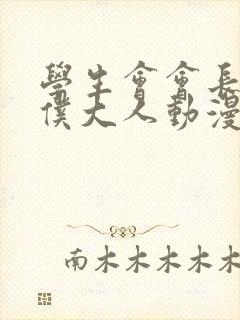 學生會會長
僕大人動漫
南木木木木木